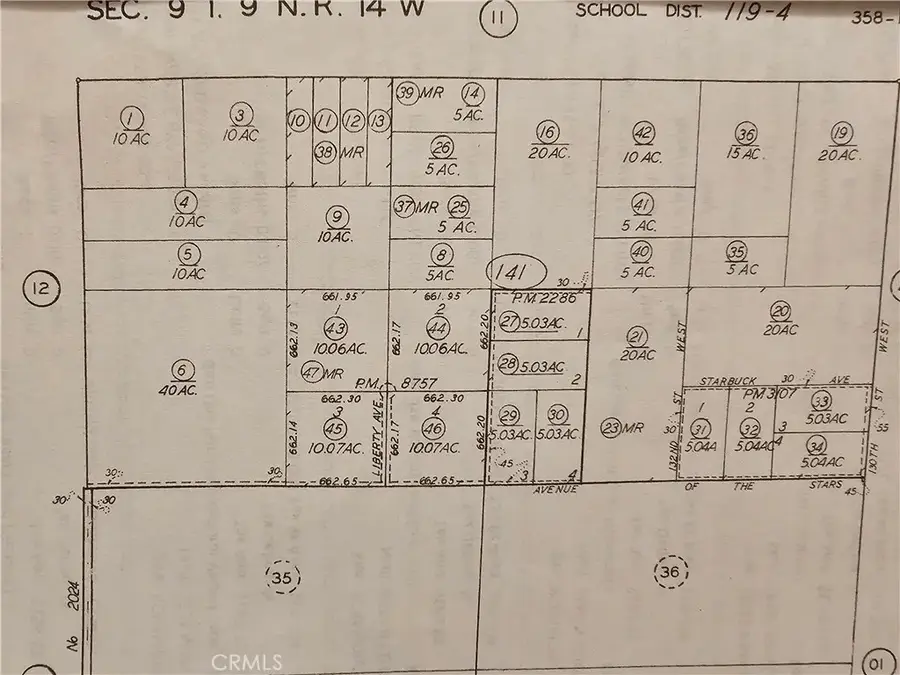 SEC. 9 T. 9 N. R. 14 W
11
SCHOOL DIST. 119-4
358-
1
10 AC
3
10 AC
10
11
12
13
38 MR
39 MR
14
5 AC.
26
5 AC.
16
20 AC.
42
10 AC.
36
15 AC.
19
20 AC.
4
10 AC
9
10 AC.
37 MR
25
5 AC.
41
5 AC.
5
10 AC
8
5 AC
40
5 AC.
35
5 AC
12
141
30
661.95
661.95
P.M 2286
1
43
10.06 AC.
2
44
10.06 AC.
662.13
662.17
662.20
27 5.03 AC.
1
21
20 AC
20
20 AC
WEST
WEST
6
40 AC.
28 5.03 AC
2
47 MR
P.M. 8757
STARBUCK
30
AVE
662.30
662.30
3
45
10.07 AC.
4
46
10.07 AC.
662.14
LIBERTY AVE.
662.17
662.20
29
5.03 AC.
30
5.03 AC.
23 MR
30
132ND
ST
PM 3107
1
31
5.04 A
2
32
5.04 AC
3
33
5.03 AC
4
34
5.04 AC
55
130TH
ST
45
3
4
30
30
662.65
662.65
AVENUE
OF THE STARS
45
30
30
35
36
No 2024
CRMLS
01